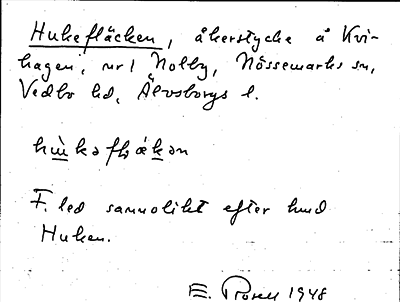 Hukefläcken, åkerstycke å Kvi-
hagen, nr 1 Nolby, Nössemarks sn,
Vedbo hd, Älvsborgs l.
F. led sannolikt efter
Huken.
E. 1948